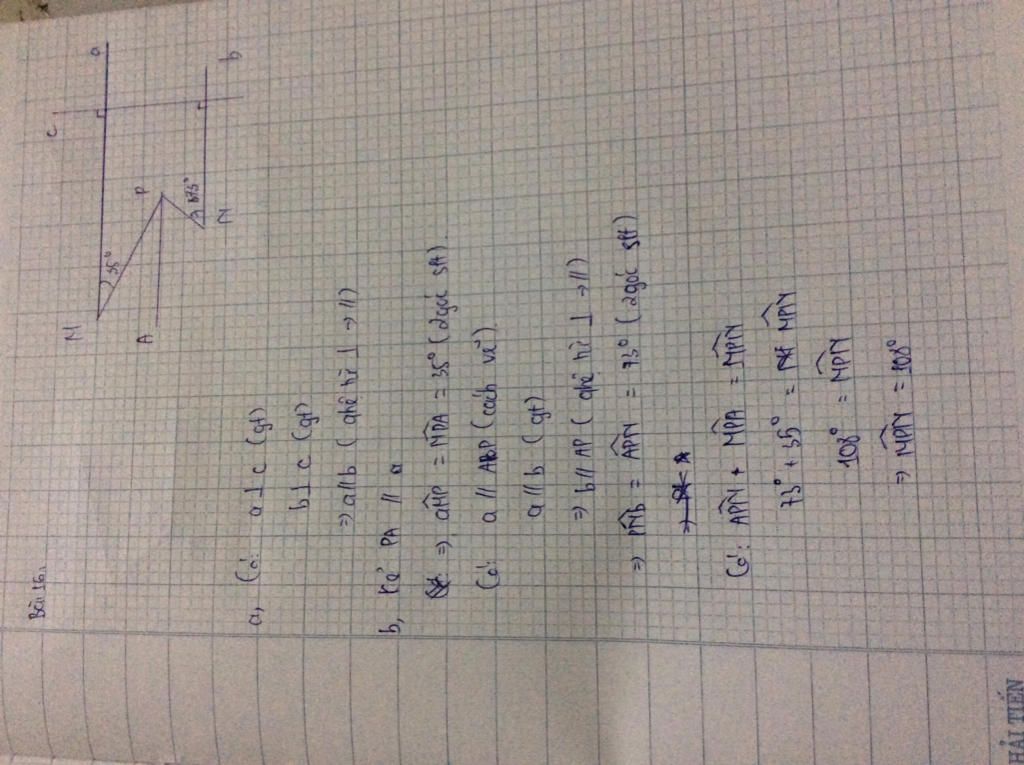 Bài 16:
c
M
a
35°
P
A
73°
N
b
a, Có: a ⊥ c (gt)
b ⊥ c (gt)
=> a // b ( qhệ ⊥ → //)
b, Kẻ PA // a
=> aMP = MPA = 35° (2góc slt).
Có: a // AP (cách vẽ)
a // b (gt)
=> b // AP ( qhệ ⊥ → //)
=> PNb = APN = 73° (2góc slt)
Có: APN + MPA = MPN
73° + 35° = MPN
108° = MPN
=> MPN = 108°
HẢI TIẾN